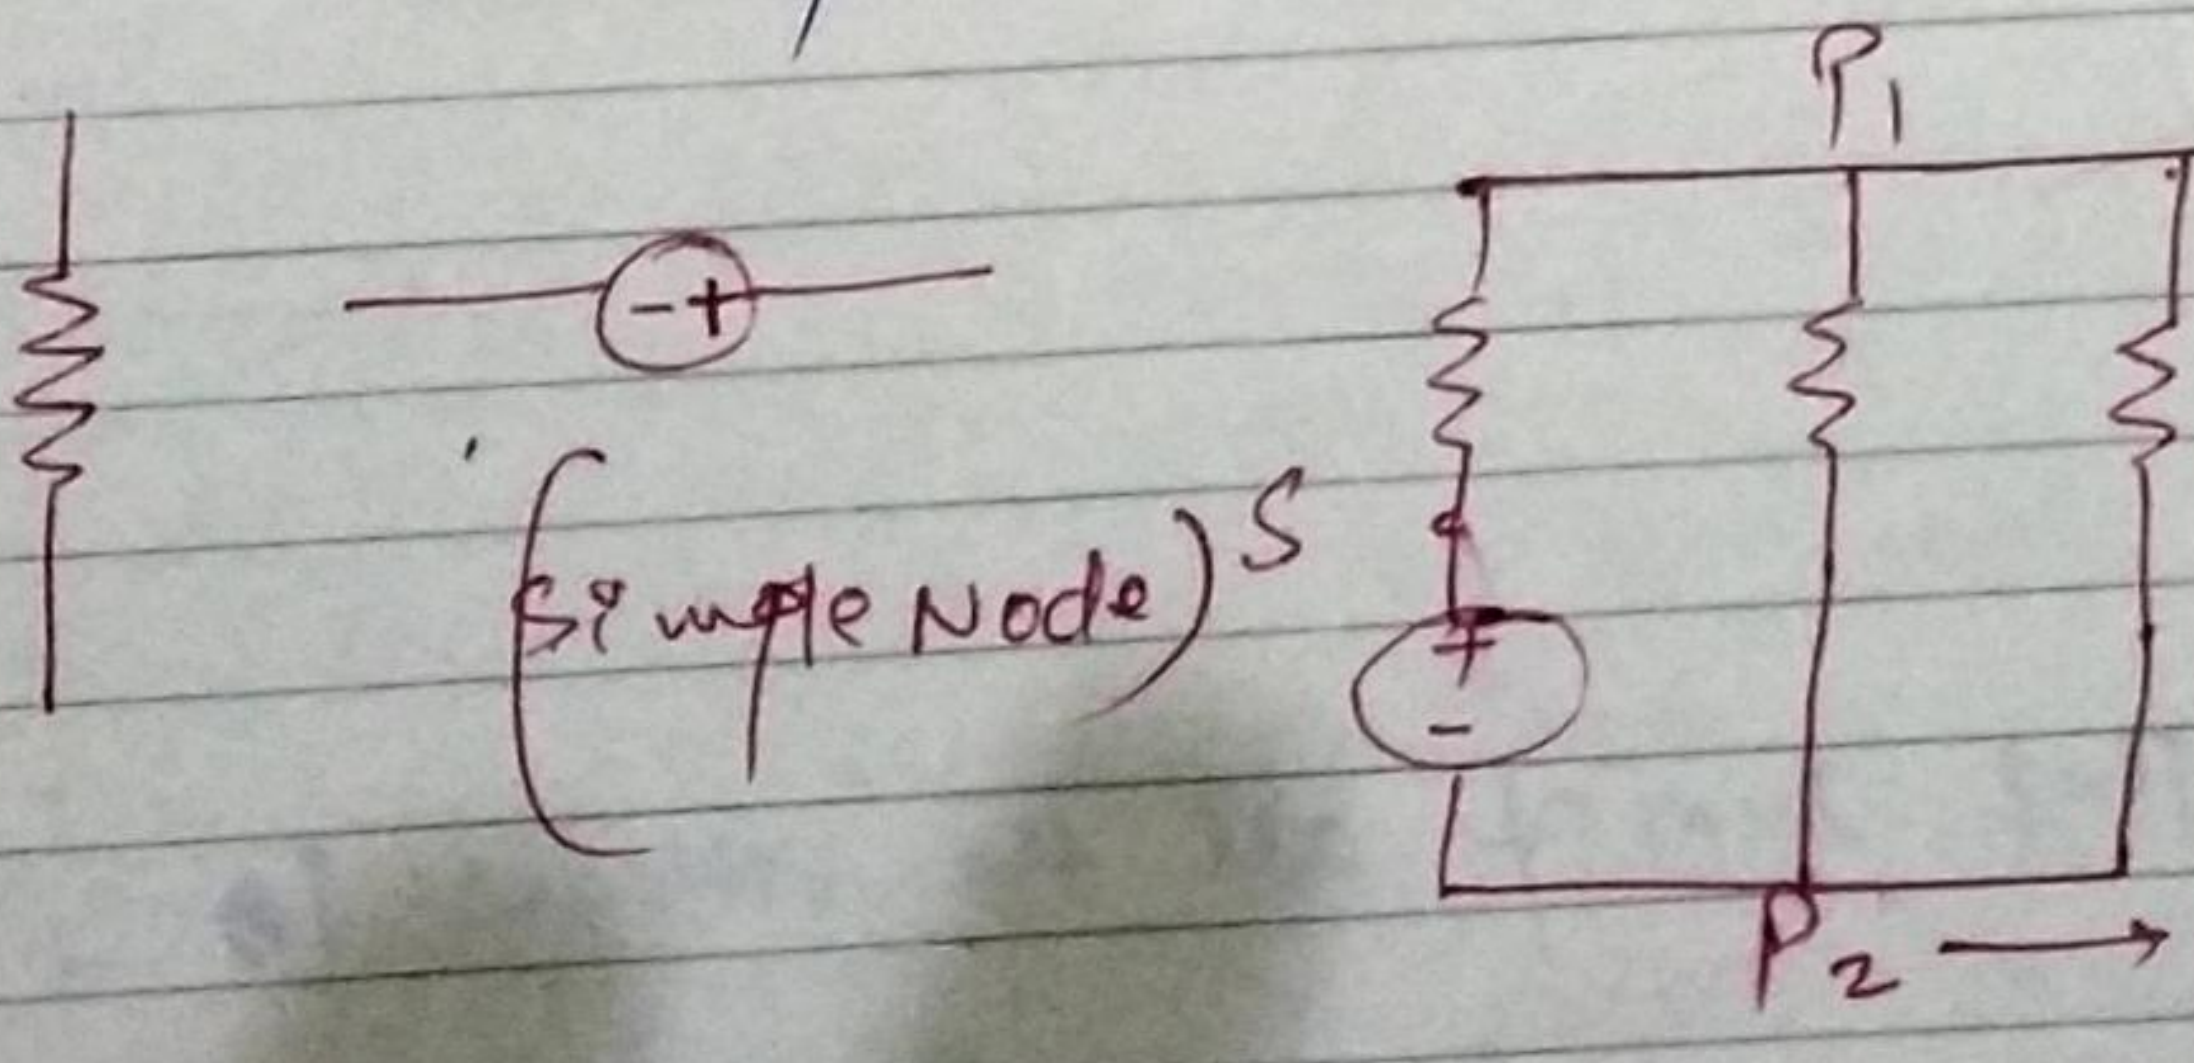 P1
- +
(Simple Node) S
+
-
P2 →